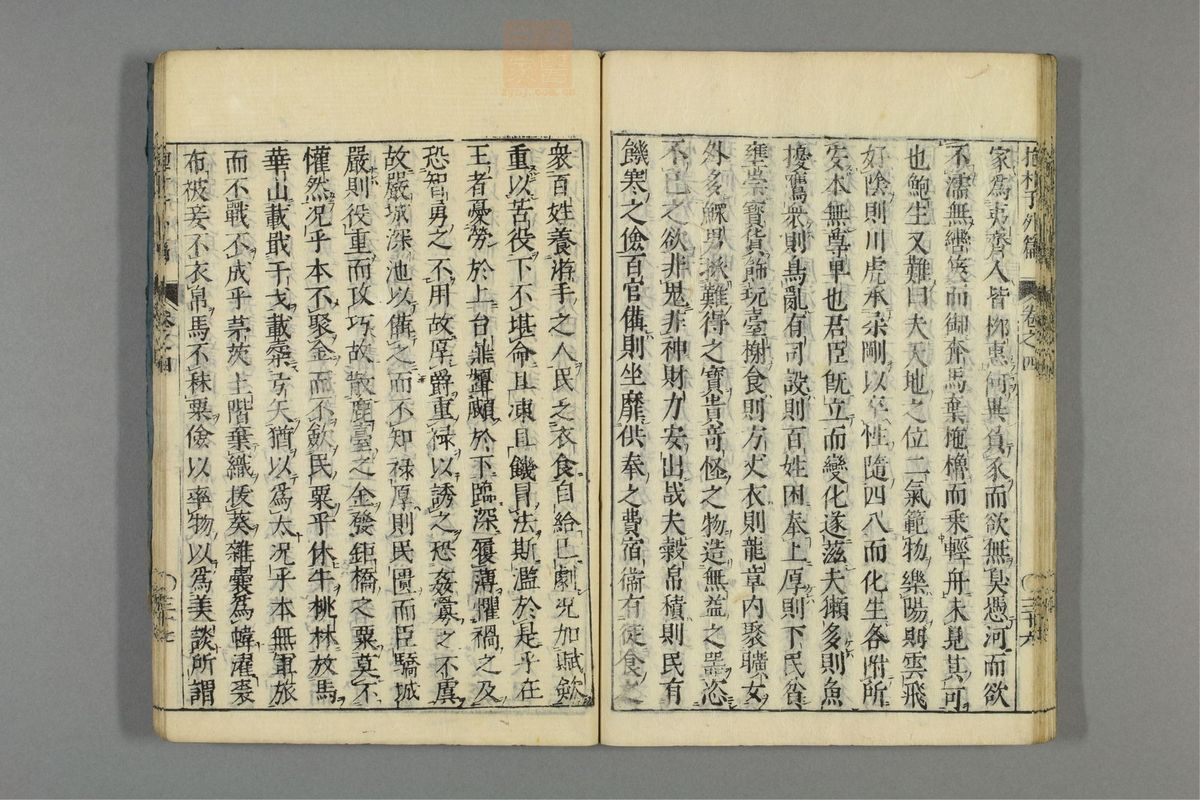 抱朴子外篇 卷之四
家爲夷齊人皆柳惠何異負豕而欲無臭憑河而欲
不濡無轡筴而御奔馬棄柂櫓而乘輕舟未見其可
也鮑生又難曰夫天地之位二氣範物樂陽則雲飛
好陰則川處承柔剛以率性隨四八而化生各附所
安本無尊卑也君臣旣立而變化遂滋夫獺多則魚
擾鷹衆則鳥亂有司設則百姓困奉上厚則下民貧
壅崇寶貨飾玩臺榭食則方丈衣則龍章內聚曠女
外多鰥男採難得之寶貴奇怪之物造無益之器恣
不已之欲非鬼非神財力安出哉夫穀帛積則民有
饑寒之儉百官備則坐靡供奉之費宿衞有徒食之
衆百姓養游手之人民之衣食自給已劇況加賦歛
重以苦役下不堪命且凍且饑冒法斯濫於是乎在
王者憂勞於上台鼎顰顣於下臨深履薄懼禍之及
恐智勇之不用故厚爵重祿以誘之恐姦釁之不虞
故嚴城深池以備之而不知祿厚則民匱而臣驕城
嚴則役重而攻巧故散鹿臺之金發鉅橋之粟莫不
懽然況乎本不聚金而不歛民粟乎休牛桃林放馬
華山載戢干戈載櫜弓矢猶以爲太況乎本無軍旅
而不戰不成乎茅茨土階棄織拔葵雜囊爲幃濯裘
布被妾不衣帛馬不秣粟儉以率物以爲美談所謂
卷之四